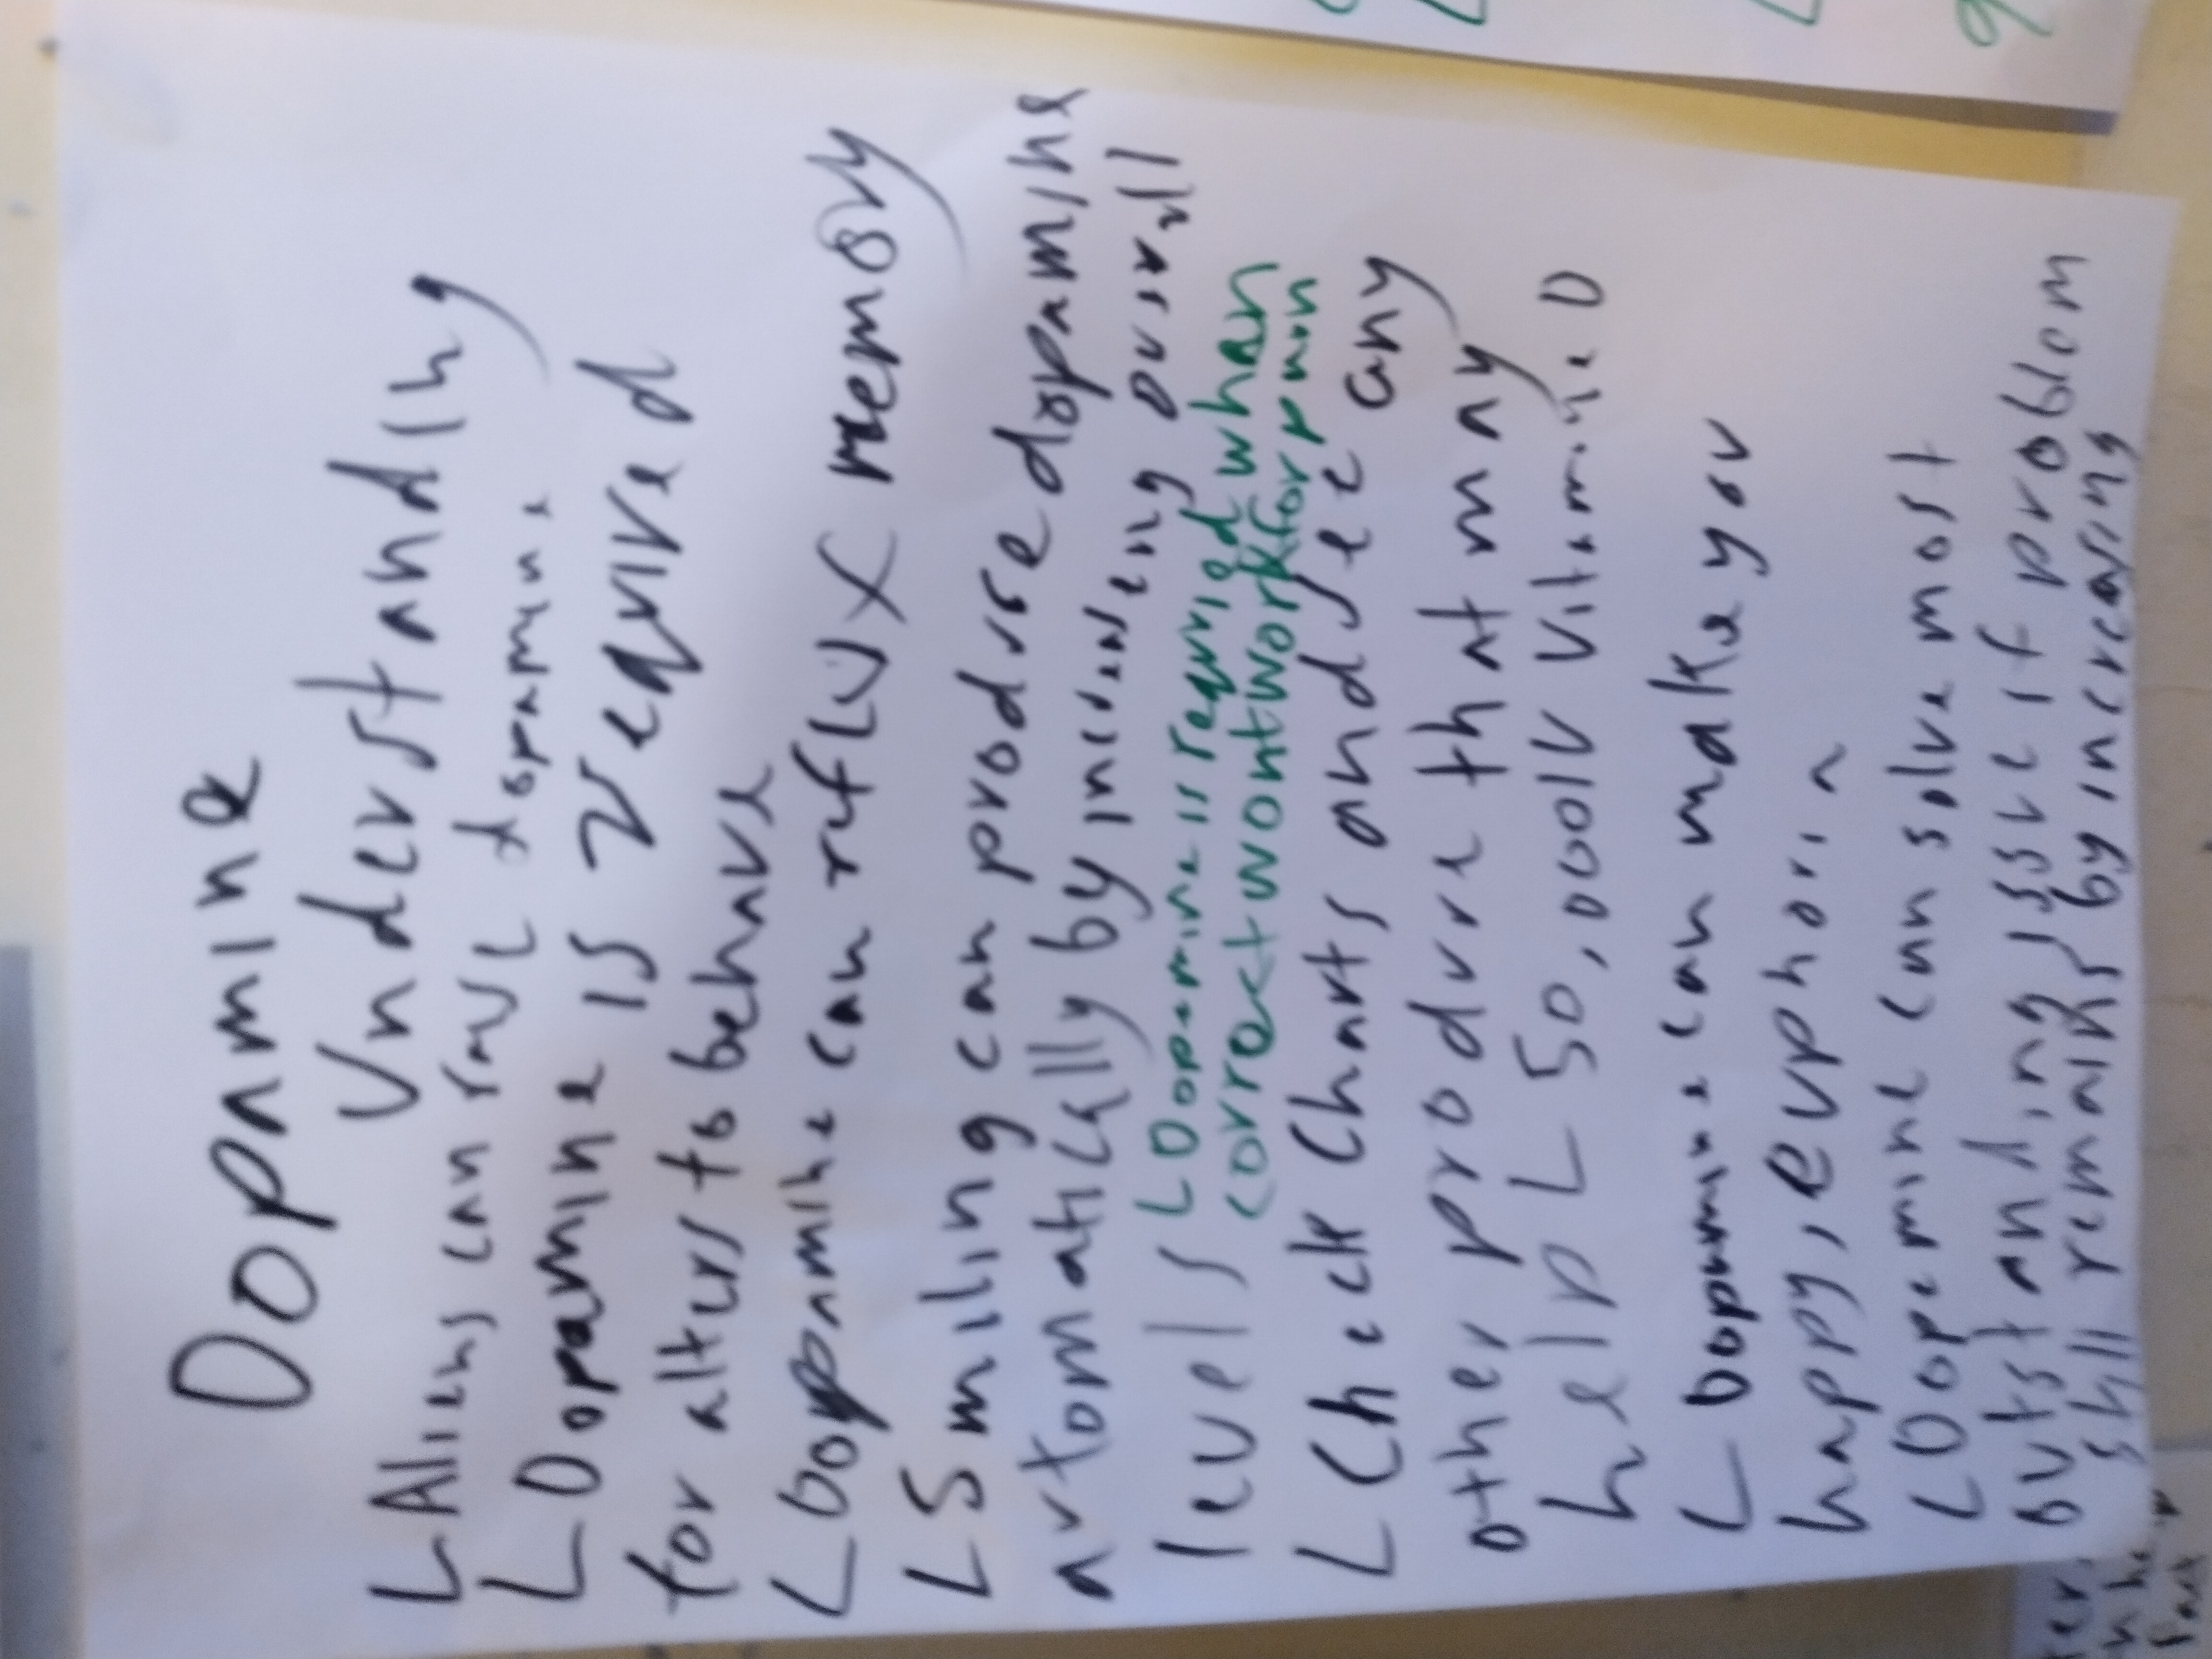 Dopamine
Understanding
L Aliens can dopamine
L Dopamine is required
for alters to behave
L Dopamine can reflux memory
L Smiling can produse dopamine
automatically by increasing overall
levels L Dopamine is required when
correct wont work for man
L Check Charts and see any
other produre that may
help L 50,000iu Vitamin D
L Dopamine can make you
happy, euphoria
L Dopamine can solve most
outstanding issue if problom
still remains by increasing